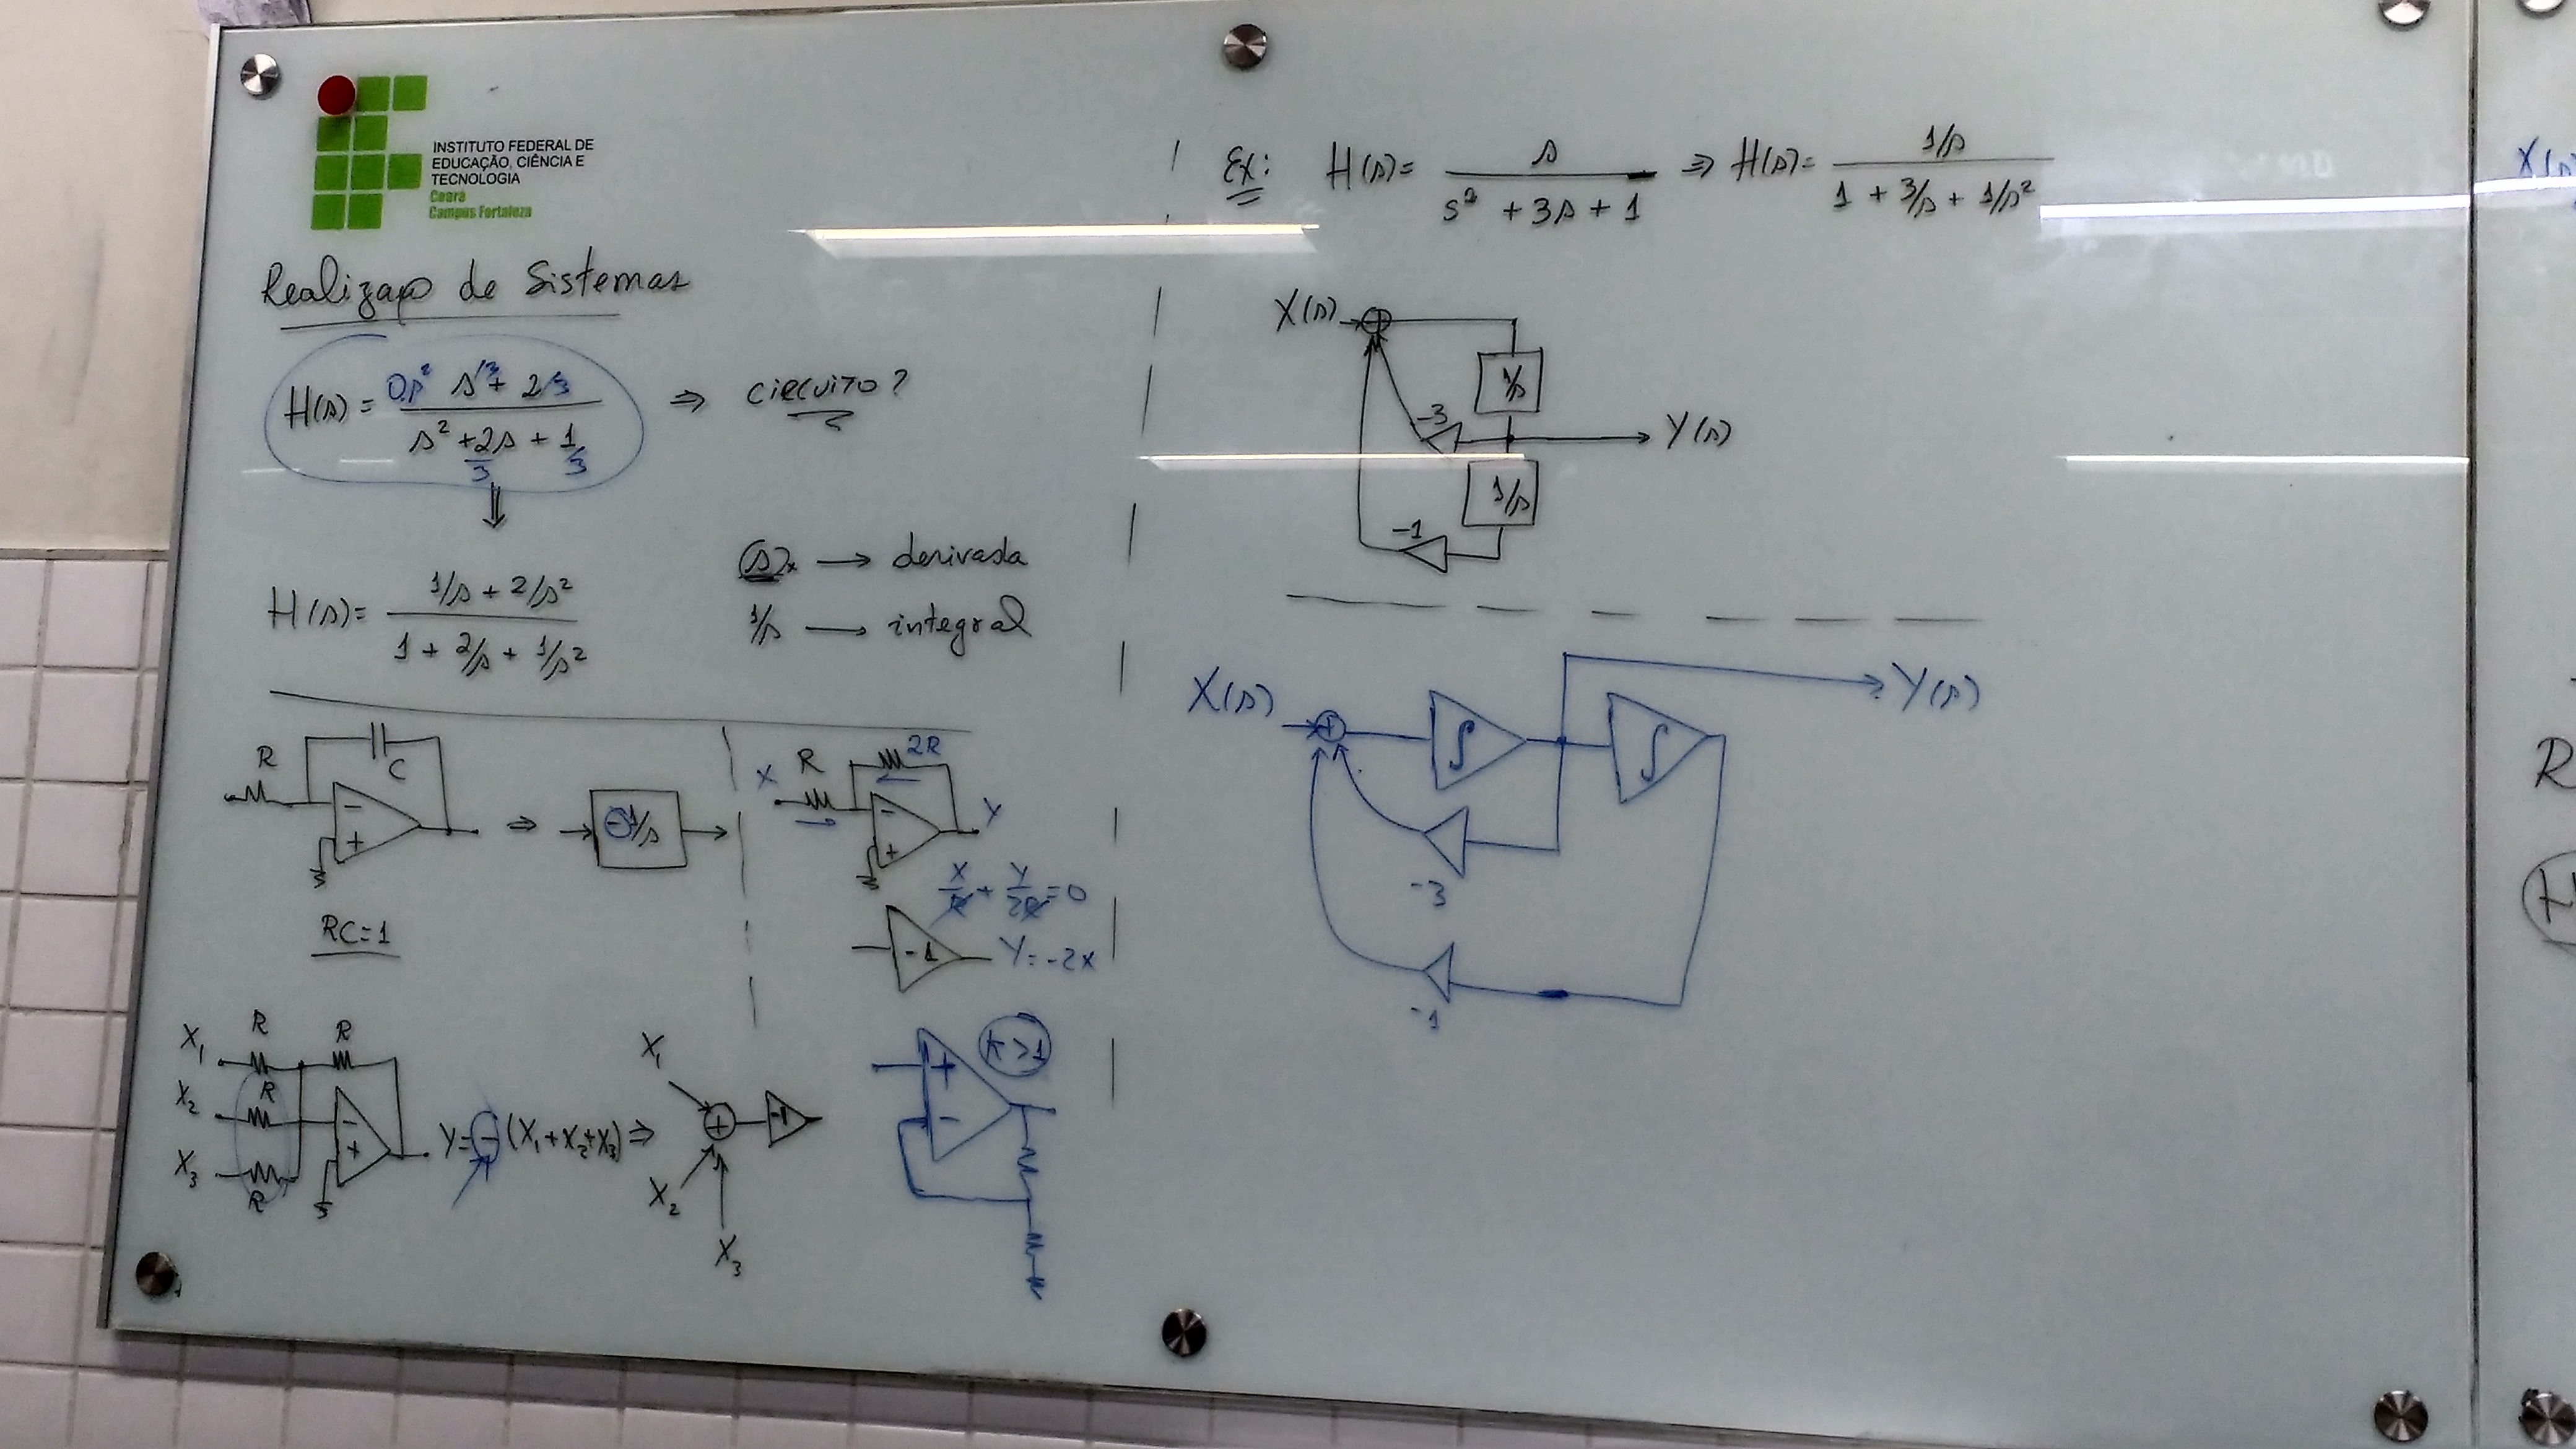 INSTITUTO FEDERAL DE
EDUCAÇÃO, CIÊNCIA E
TECNOLOGIA
Ceará
Campus Fortaleza
Realizaço de Sistemas
H(s) = 0s² s/3 + 2/3
s² + 2s/3 + 1/3
⇒ CIRCUITO?
⇓
H(s) = 1/s + 2/s²
1 + 2/s + 1/s²
(s)x → derivada
1/s → integral
R
C
-
+
⇒
-1/s
RC=1
X
R
2R
-
+
Y
X/R + Y/2R = 0
-1
Y = -2X
X₁
R
R
X₂
R
X₃
R
-
+
Y = -(X₁+X₂+X₃) ⇒
X₁
+
-1
X₂
X₃
+
-
K>1
Ex: H(s) = s
s² + 3s + 1
⇒ H(s) = 1/s
1 + 3/s + 1/s²
X(s)
+
1/s
-3
Y(s)
1/s
-1
X(s)
+
∫
∫
Y(s)
-3
-1
X(s)
R
H